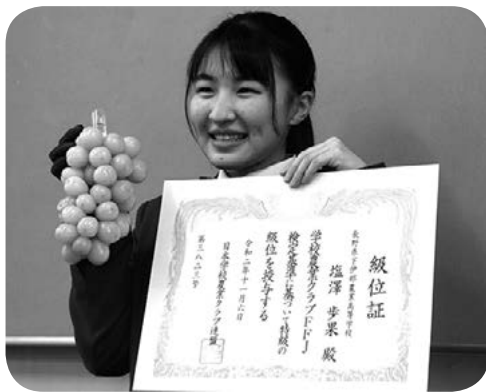 級位証
長野県下伊那農業高等学校
塩澤歩果殿
学校農業クラブFFJ
検定基準に基づいて特級の
級位を授与する
令和二年十一月六日
日本学校農業クラブ連盟